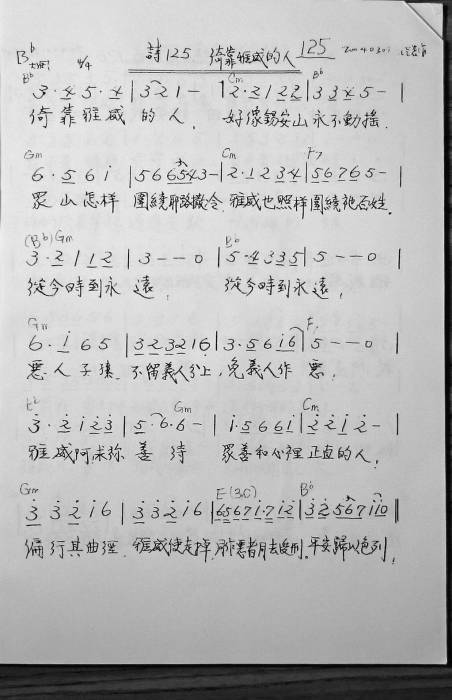 B♭ 大調 4/4 詩125 倚靠雅威的人 125
B♭ Cm B♭
3·4 5·4 | 3 2 1 - | 2·2 1 2 2 | 3 3 4 5 - |
倚靠雅威的人，好像錫安山永不動搖.
Gm Cm F7
6·5 6 i | 5 6 6 5 4 3 - | 2·1 2 3 4 | 5 6 7 6 5 - |
眾山怎樣圍繞耶路撒冷，雅威也照樣圍繞祂百姓，
(B♭) Gm B♭
3·2 1 1 2 | 3 - - 0 | 5·4 3 3 5 | 5 - - 0 |
從今時到永遠，從今時到永遠，
Gm F
6·i 6 5 | 3 2 3 2 1 6 | 3·5 6 i 6 | 5 - - 0 |
惡人子孫，不留義人分上，免義人作惡，
E♭ Gm Cm
3·2 i 2 3 | 5·6·6 - | i·5 6 6 i | 2 2 i 2 - |
雅威阿求祢善待眾善和心裡正直的人，
Gm E(3,C) B♭
3 3 2 i 6 | 3 3 2 i 6 | 6 5 6 7 i·7 i 2 | 3 2 5 6 7 i i 0 ‖
偏行其曲徑，雅威使走掉，平安歸以色列，